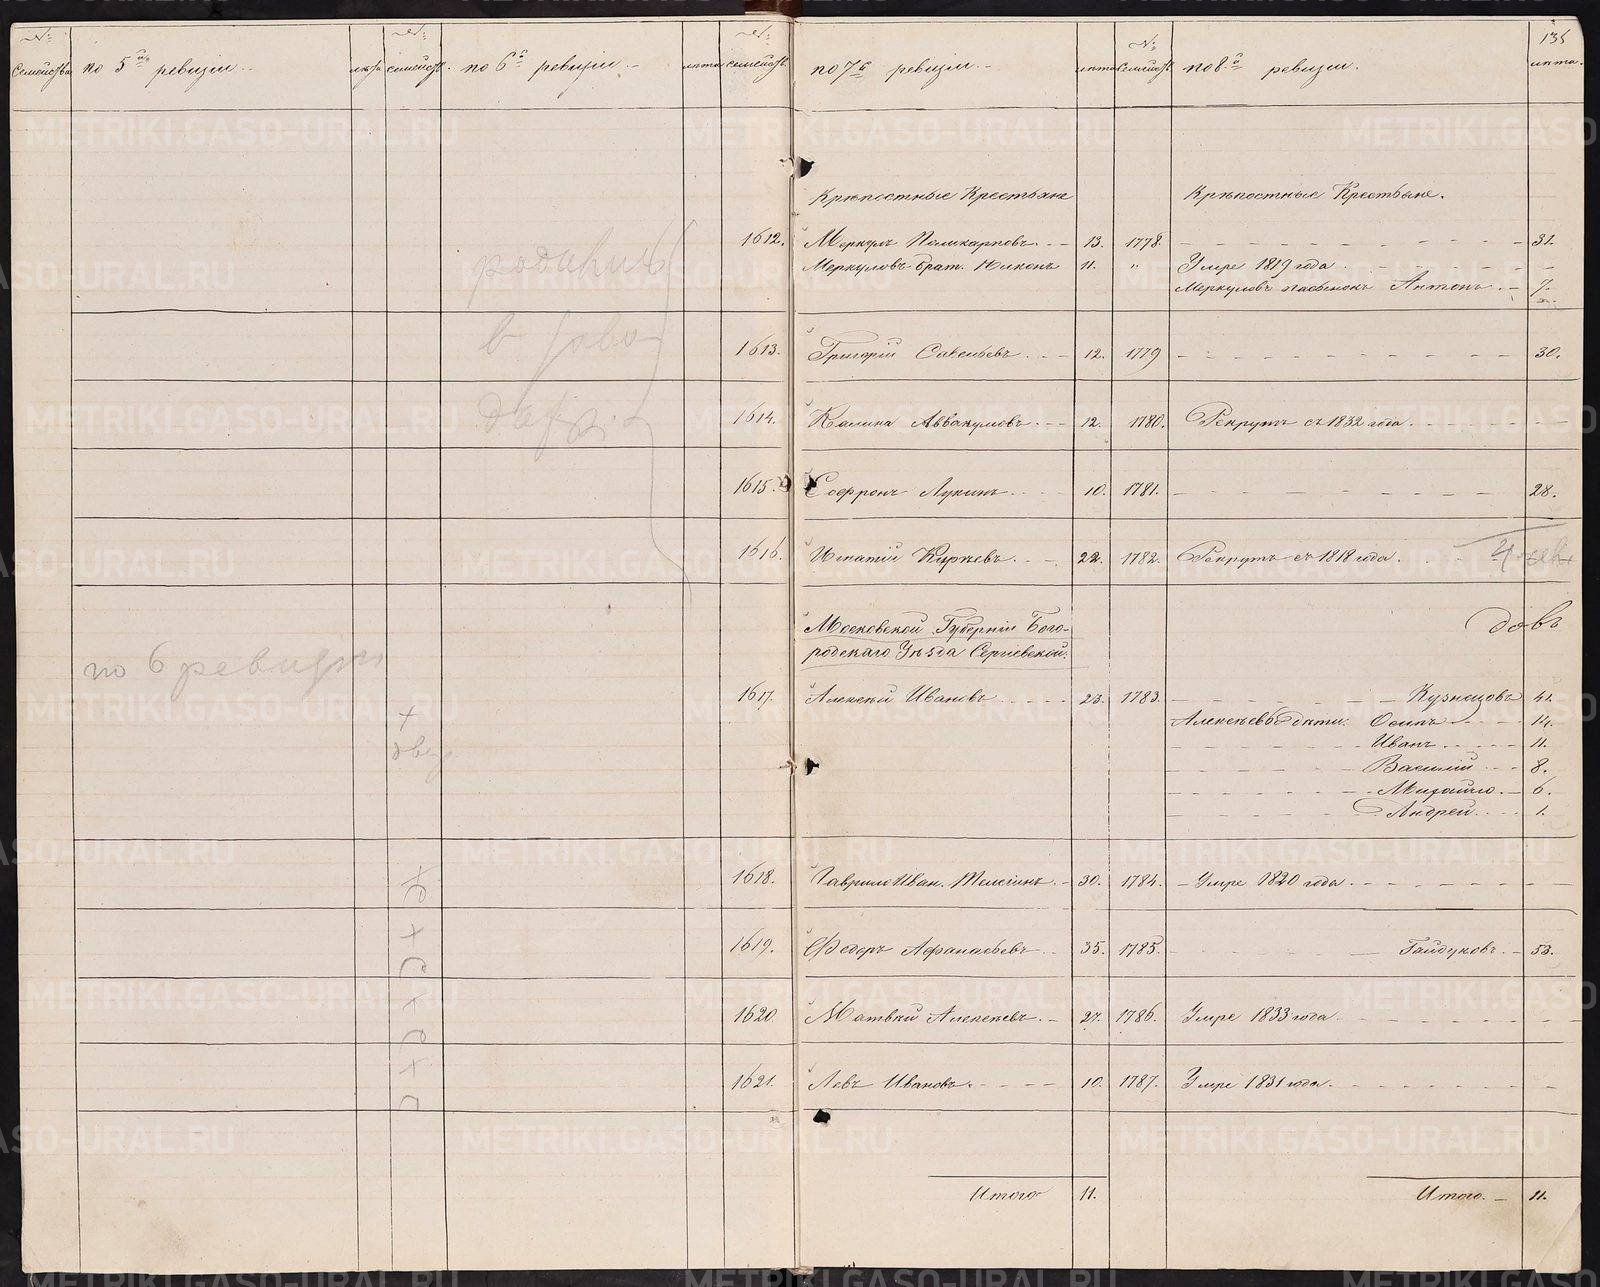 135
№ семейства по 5й ревизии лѣта № семейств. по 6й ревизии лѣта № семейств. по 7й ревизии лѣта № семейств. по 8й ревизии лѣта
Крѣпостные Крестьяне Крѣпостные Крестьяне.
1612. Меркулъ Поликарповъ 13. 1778. 31.
Меркуловъ братъ Никонъ 11. " Умре 1819 года
Меркуловъ пасынокъ Антонъ 7.
1613. Григорій Савельевъ 12. 1779 30.
1614. Калина Аввакумовъ 12. 1780. Рекрутъ съ 1832 года.
1615. Софронъ Лукинъ 10. 1781. 28.
1616. Игнатій Кирѣевъ 22. 1782. Рекрутъ съ 1818 года.
Московской Губерніи Бого-
родскаго Уѣзда Сергіевской.
по 6 ревизии
1617. Алексѣй Ивановъ 23. 1783. Кузнецовъ 41.
Алексѣевы дѣти: Осипъ 14.
Иванъ 11.
Василій 8.
Михайло 6.
Андрей 1.
1618. Гаврило Иван. Телегинъ 30. 1784. Умре 1820 года
1619. Федоръ Афанасьевъ 35. 1785. Гайдуковъ 53.
1620 Матвѣй Алексѣевъ 27. 1786. Умре 1833 года
1621. Левъ Ивановъ 10. 1787. Умре 1831 года.
Итого 11. Итого 11.
METRIKI.GASO-URAL.RU